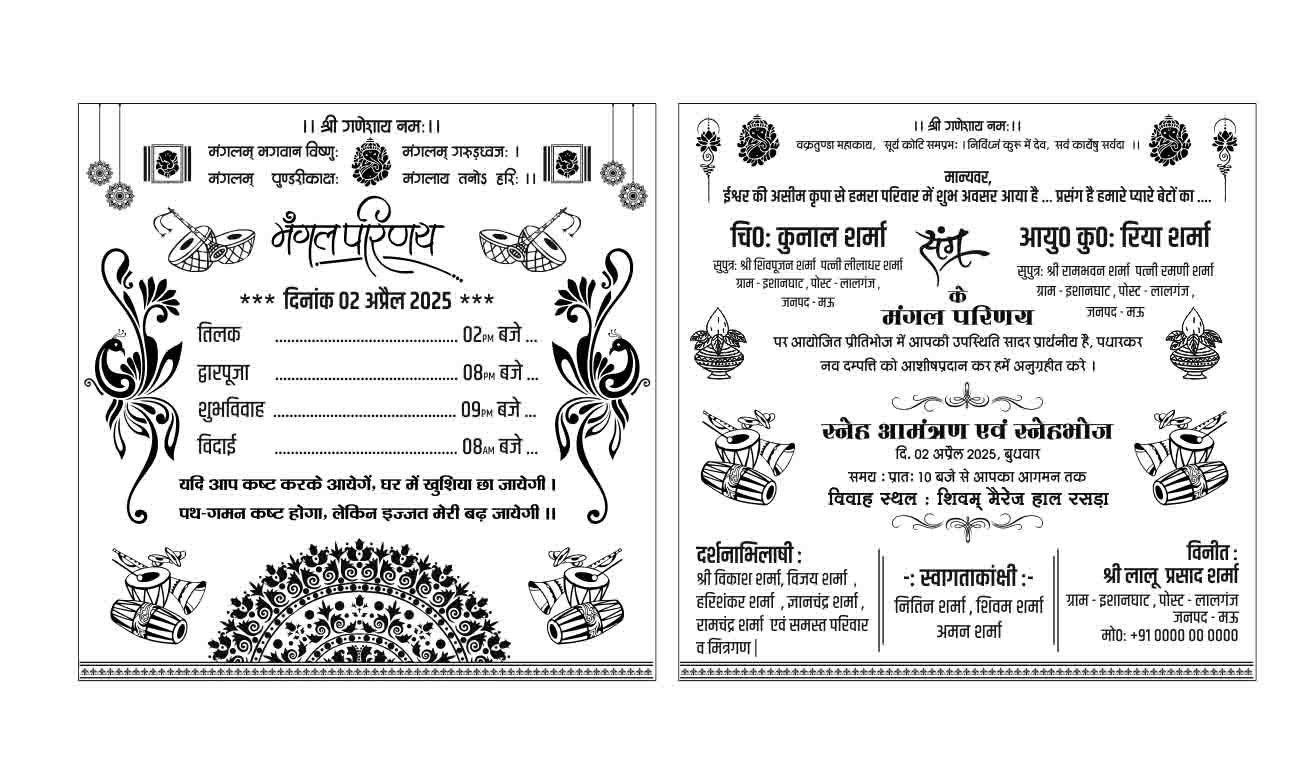 ।। श्री गणेशाय नमः।।
मंगलम् भगवान विष्णुः मंगलम् गरुड़ध्वजः ।
मंगलम् पुण्डरीकाक्षः मंगलाय तनोऽ हरिः ।।
मँगल परिणय
*** दिनांक 02 अप्रैल 2025 ***
तिलक ............................................ 02PM बजे ...
द्वारपूजा ............................................ 08PM बजे ...
शुभविवाह ............................................ 09PM बजे ...
विदाई ............................................ 08AM बजे ...
यदि आप कष्ट करके आयेगें, घर में खुशिया छा जायेगी ।
पथ-गमन कष्ट होगा, लेकिन इज्जत मेरी बढ़ जायेगी ।।
।। श्री गणेशाय नमः।।
वक्रतुण्डा महाकाय, सूर्य कोटि समप्रभः । निर्विघ्नं कुरू में देव, सर्व कार्येषु सर्वदा ।।
मान्यवर,
ईश्वर की असीम कृपा से हमरा परिवार में शुभ अवसर आया है ... प्रसंग है हमारे प्यारे बेटों का ....
चि0: कुनाल शर्मा संग आयु0 कु0: रिया शर्मा
सुपुत्र: श्री शिवपूजन शर्मा पत्नी लीलाधर शर्मा
ग्राम - इशानघाट , पोस्ट - लालगंज ,
जनपद - मऊ
सुपुत्र: श्री रामभवन शर्मा पत्नी रमणी शर्मा
ग्राम - इशानघाट , पोस्ट - लालगंज ,
जनपद - मऊ
के
मंगल परिणय
पर आयोजित प्रीतिभोज में आपकी उपस्थिति सादर प्रार्थनीय है, पधारकर
नव दम्पत्ति को आशीषप्रदान कर हमें अनुग्रहीत करे ।
स्नेह आमंत्रण एवं स्नेहभोज
दि. 02 अप्रैल 2025, बुधवार
समय : प्रातः 10 बजे से आपका आगमन तक
विवाह स्थल : शिवम् मैरेज हाल रसड़ा
दर्शनाभिलाषी :
श्री विकाश शर्मा, विजय शर्मा ,
हरिशंकर शर्मा , ज्ञानचंद्र शर्मा ,
रामचंद्र शर्मा एवं समस्त परिवार
व मित्रगण |
-: स्वागताकांक्षी :-
नितिन शर्मा , शिवम शर्मा
अमन शर्मा
विनीत :
श्री लालू प्रसाद शर्मा
ग्राम - इशानघाट , पोस्ट - लालगंज
जनपद - मऊ
मो0: +91 0000 00 0000